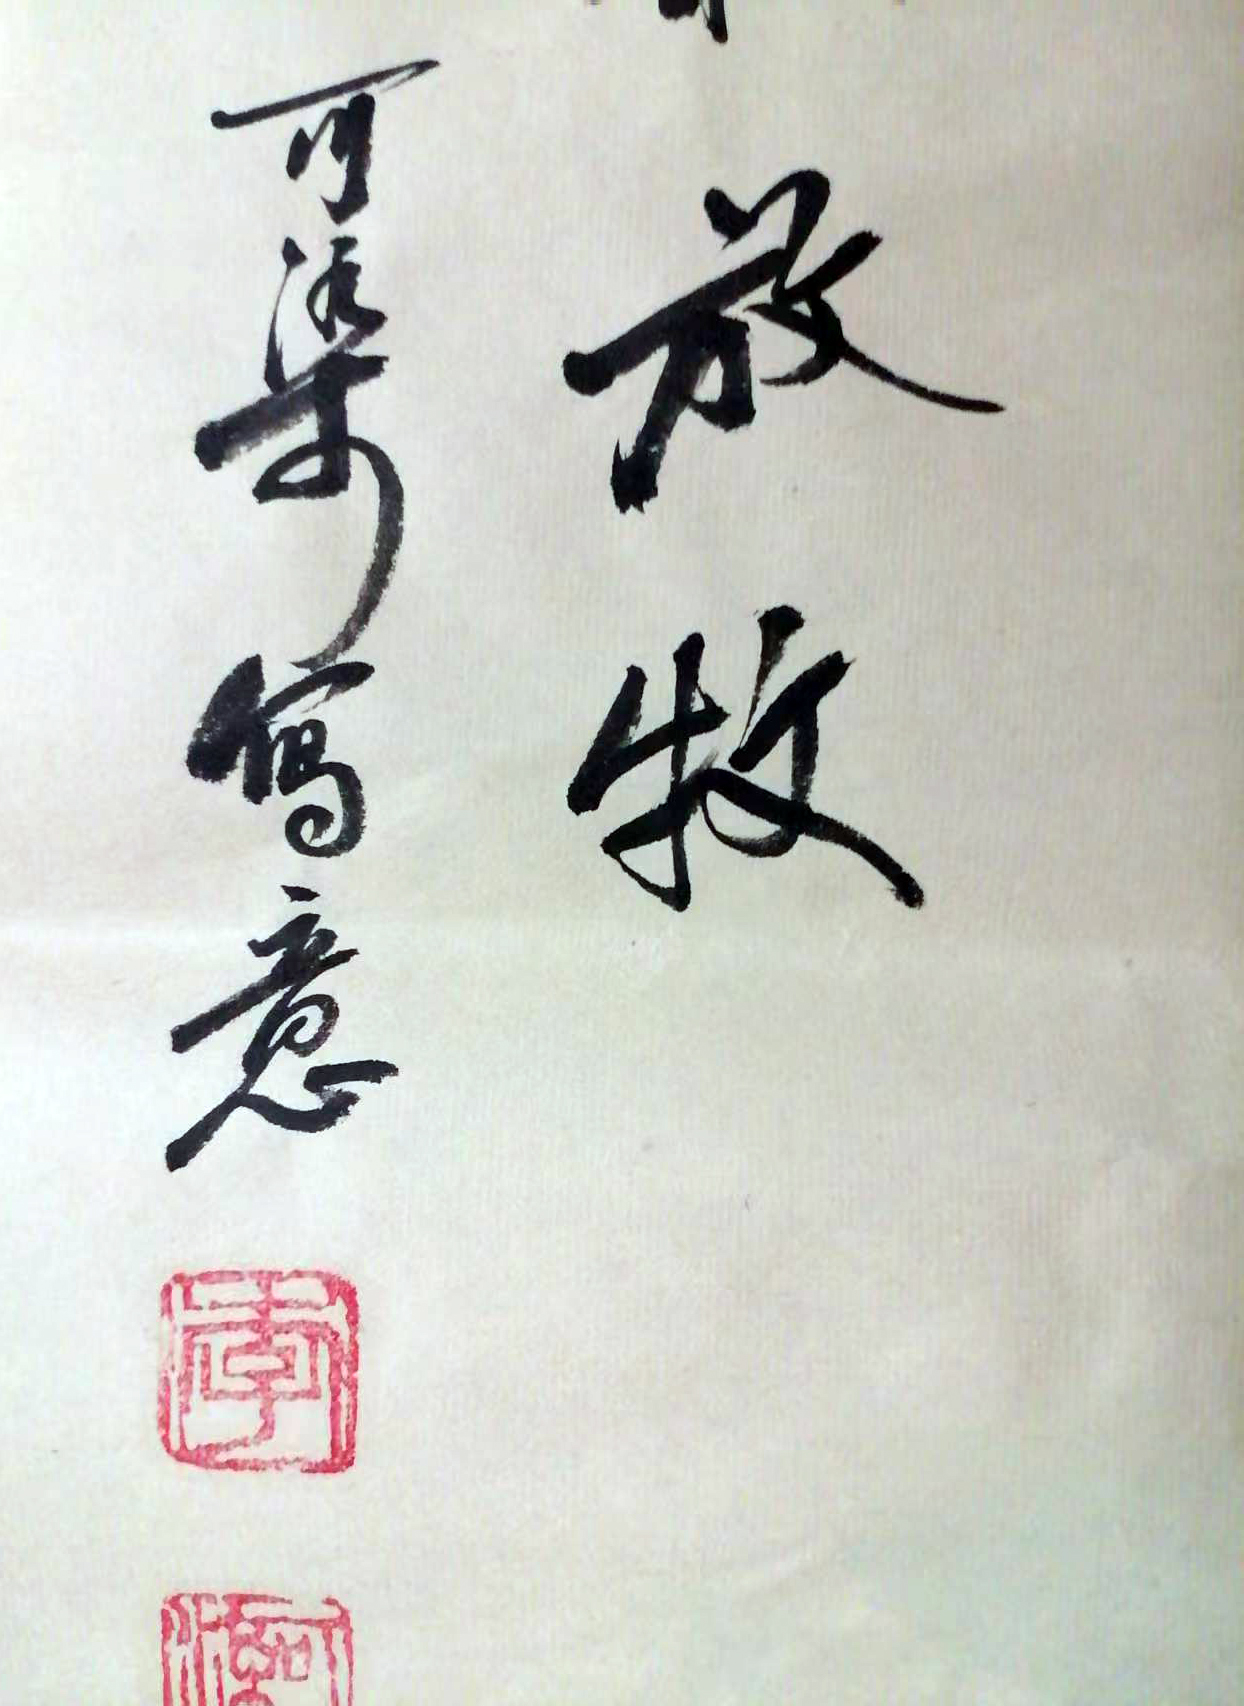 放牧
可染寫意
李